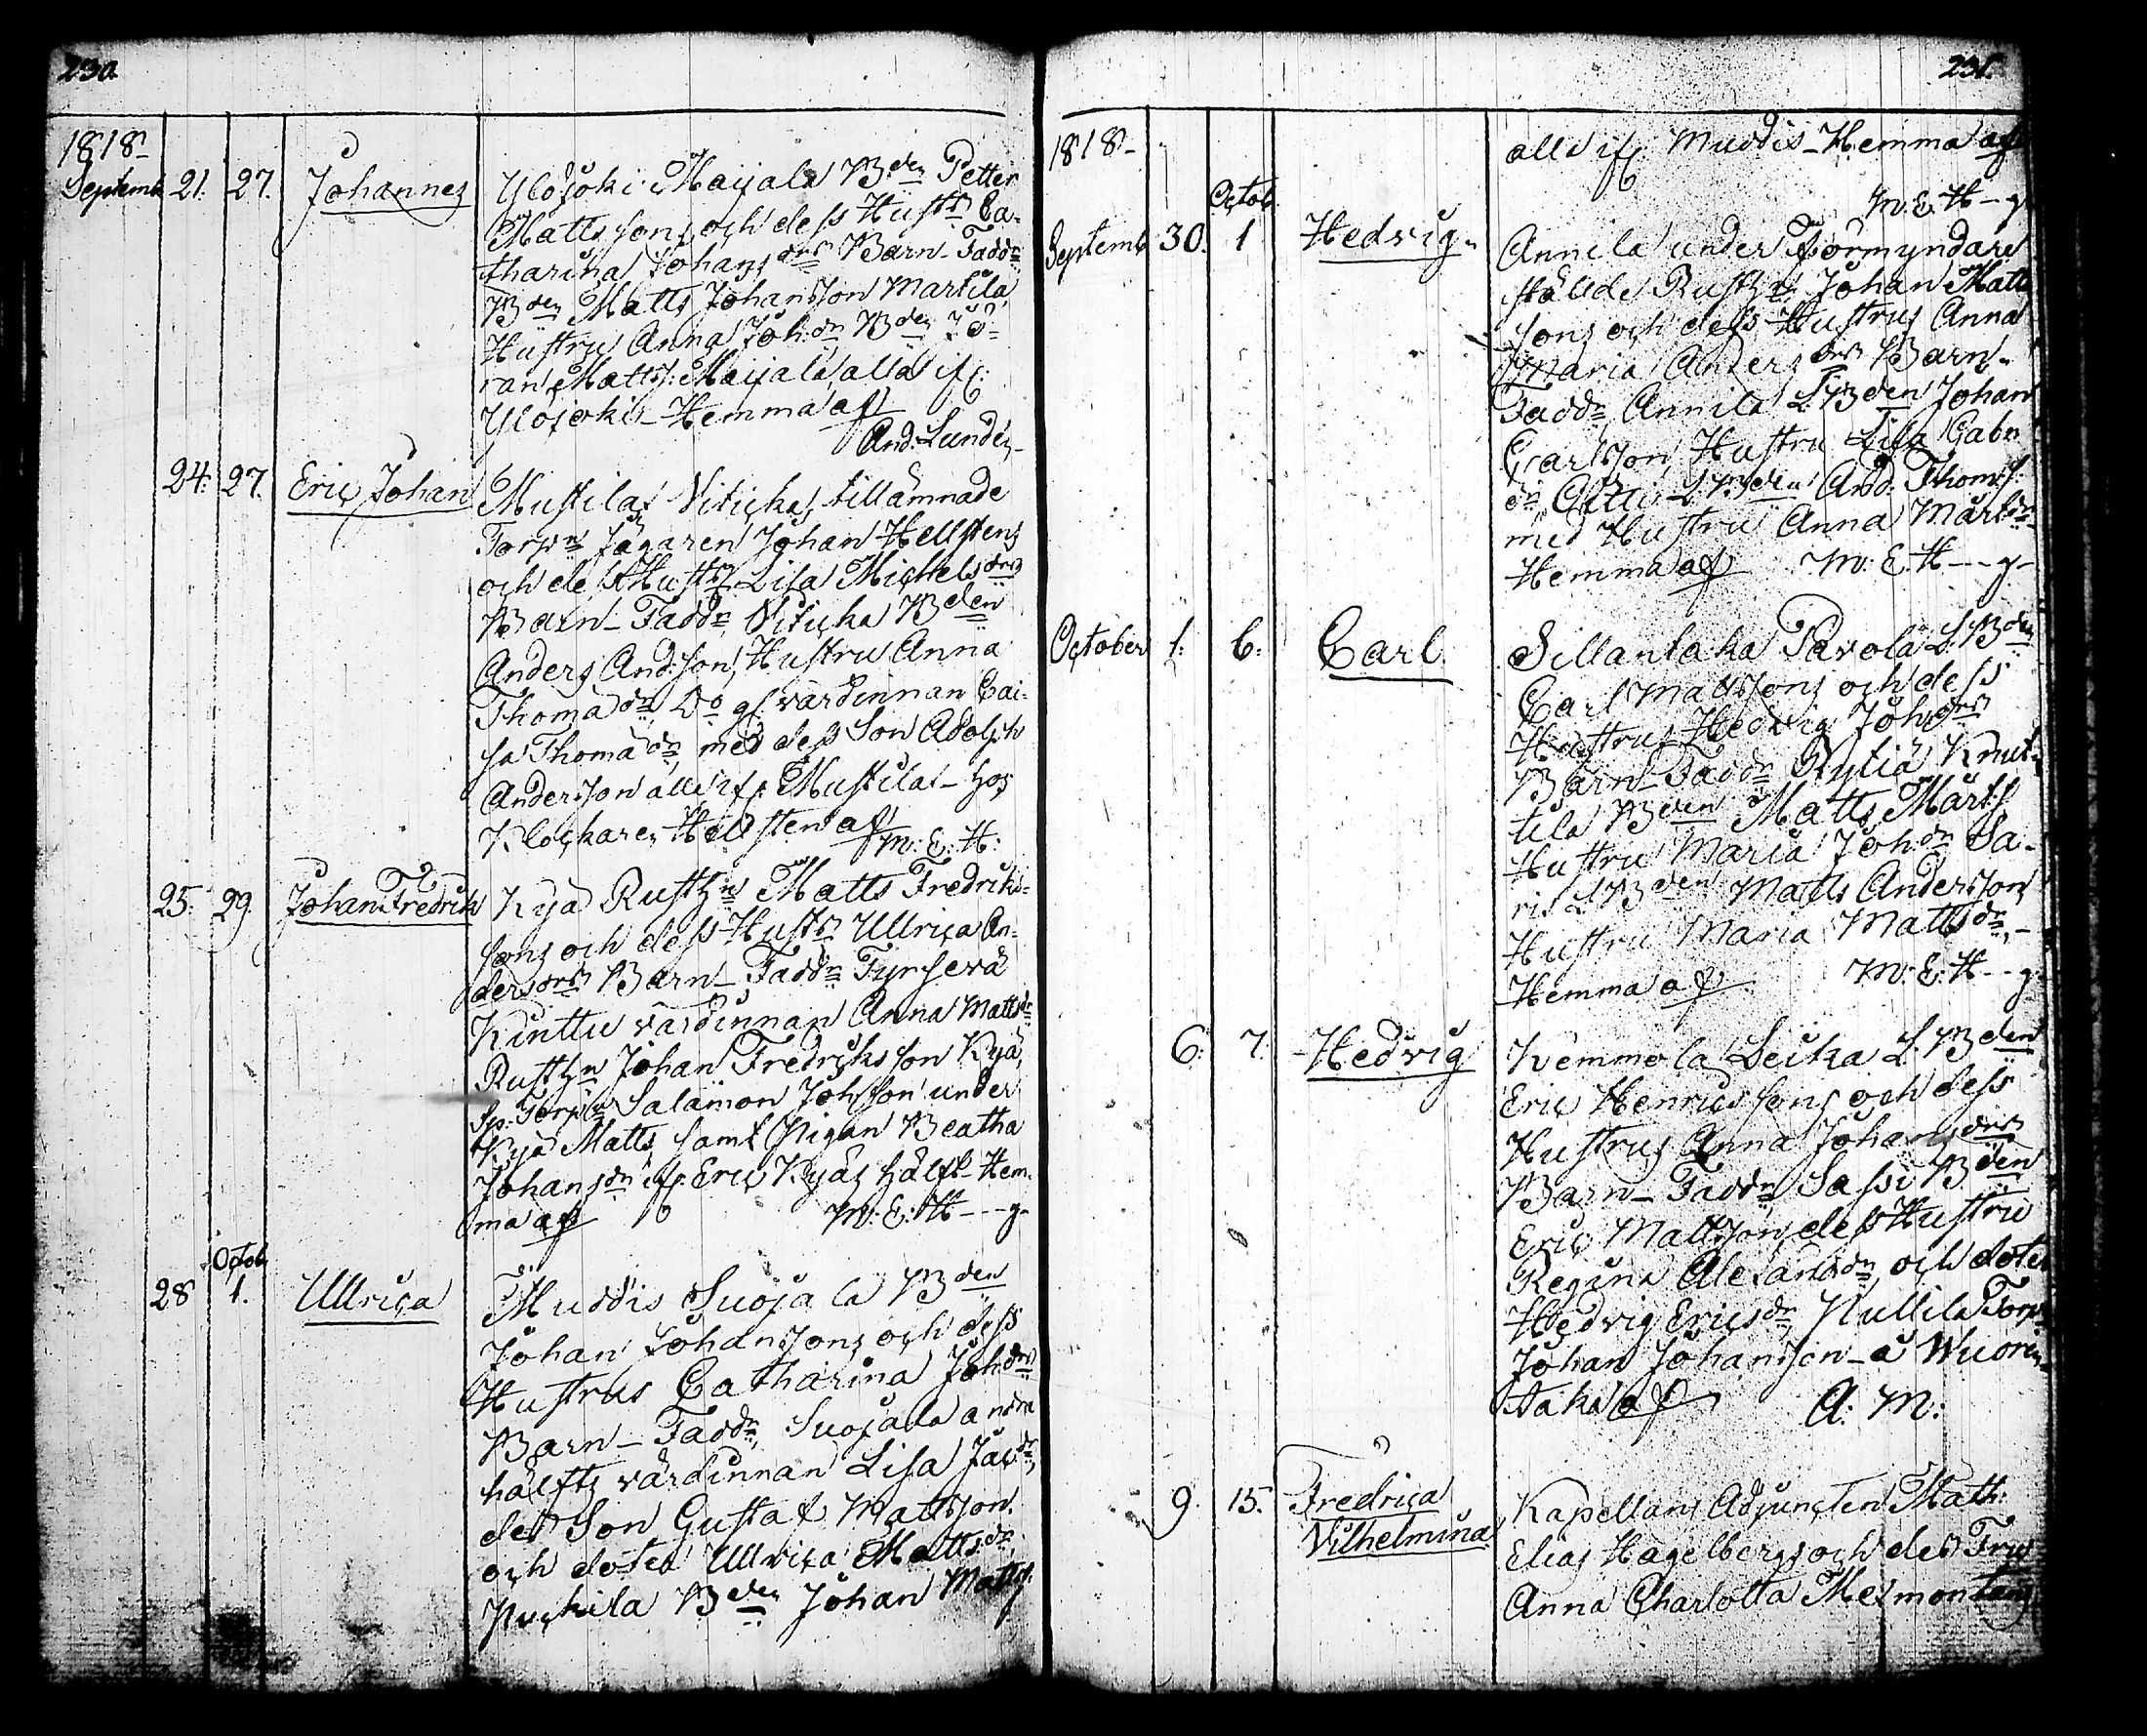 230.
1818
Septemb. 21. 27. Johannes
Ylosjoki Maijala Bden Petter
Mattssons och dess Hustrs Ca-
tharina Johansdrs Barn - Faddr
Bden Matts Johansson Martila,
Hustru Anna Joh:dr Bden Jö-
ran Mattss: Maijala, alla if:
Ylojoki - Hemma af
And: Lundén
24: 27. Eric Johan
Mustila Viticka tillämnade
Torpn Jägaren Johan Hellstens
och dess Hust: Lisa Michelsdrs
Barn - Faddr Viticka Bden
Anders And:son, Hustru Anna
Thomädr, Do gl: värdinnan Cai-
sa Thomädr, med dess Son Adolph
Andersson alla if: Mustila - hos
Klockaren Hellsten af
M: E: H:
25. 29. Johan Fredrik
Kyä Rusthn Matts Fredriks-
sons och dess Hustrs Ullrica An-
dersdrs Barn - Faddr
Kinttu värdinnan Anna Mattsdr
Rusthn Johan Fredriksson Kyä,
Sp: Torpn Salamon Johsson under
Kyä Matts, samt Pigan Beatha
Johansdr if: Eric Kyäs hälft - Hem-
ma af
M: E: H---g-
28 Octob. 1. Ullrica
Muddis Suojala Bden
Johan Johanssons och dess
Hustrus Catharina Johdrs
Barn - Faddr, Suojala andra
hälfts värdinnan Lisa Jacdr,
dess Son Gustaf Mattsson
och doter Ullrica Mattsdr,
Nuckila Bden Johan Mattss.
231.
1818 -
alla if: Muddis - Hemma af
M: E: H--g.
Septemb 30. Octob. 1 Hedvig
Annila under Förmyndare
ställde Rusthn Johan Matts
sons och dess Hustrus Anna
Maria Andersdrs Barn -
Faddr Annila L: Bden Johan
Carlsson, Hustru Lisa Gabr
dr, L: Bden And: Thom:s:
med Hustru Anna Märtdr
Hemma af M: E: H---g-
October 1: 6: Carl
Sillanlaka Pavola L: Bden
Carl Mattssons och dess
Hustrus Hedvig Johdrs
Barn - Faddr Kyliä Knut-
tila Bden Matts Märt:s
Hustru Maria Joh:dr Sa-
ri L Bden Matts Andersson
Hustru Maria Mattsdr, -
Hemma af M: E: H--g.
6: 7. Hedvig
Kemmola Leika L. Bden
Eric Henricssons och dess
Hustrus Anna Johansdrs
Barn - Faddr Sassi Bden
Eric Mattsson, dess Hustru
Regina Alexandr, och doter
Hedvig Ericsdr, Nullila Torp:
Johan Johansson - å Wuoren-
taka af A: M:
9. 15. Fredrica
Vilhelmina
Kapellans Adjuncten Math:
Elias Hagelbergs och dess Fru
Anna Charlotta Mesmontans